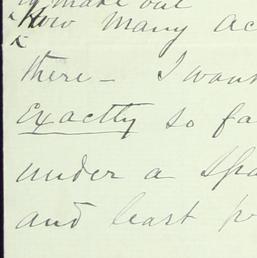 make out
How many ac
there – I wan
exactly so fa
under a Spa
and least p